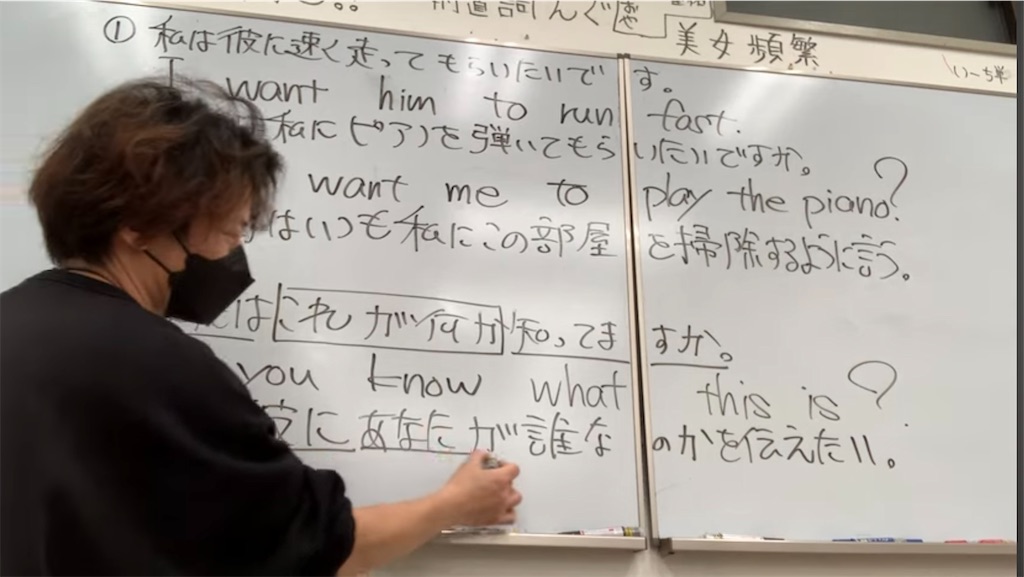 美女頻繁
① 私は彼に速く走ってもらいたいです。
I want him to run fast.
私に(ピアノ)を弾いてもらいたいですか。
want me to play the piano?
はいつも私にこの部屋を掃除するように言う。
はこれが何か知ってますか。
you know what this is?
彼にあなたが誰なのかを伝えたい。